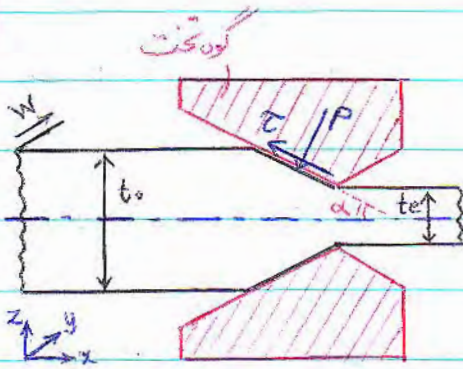 گوه تخت
W
τ P
t₀
α
te
z
y
x